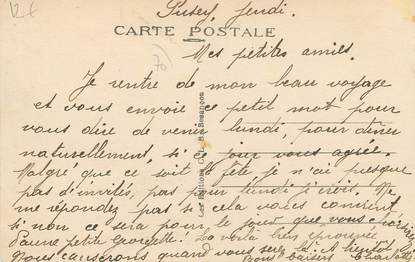 12 €
Pusey, Jeudi.
CARTE POSTALE
70)
Mes petites amies.
Je rentre de mon beau voyage
et vous envoie ce petit mot pour
vous dire de venir lundi, pour dîner
naturellement, si jour vous agrée.
Malgré, que ce soit la fête, je n'ai presque
pas d'invités, pas pour lundi je crois. Ne
me répondez pas si cela vous convient
si non ce sera pour le jour que vous choisirez
petite la voilà bien
Nous causerons quand vous serez là. A bientôt
Bons baisers
Les Editions C. L. B., Besançon